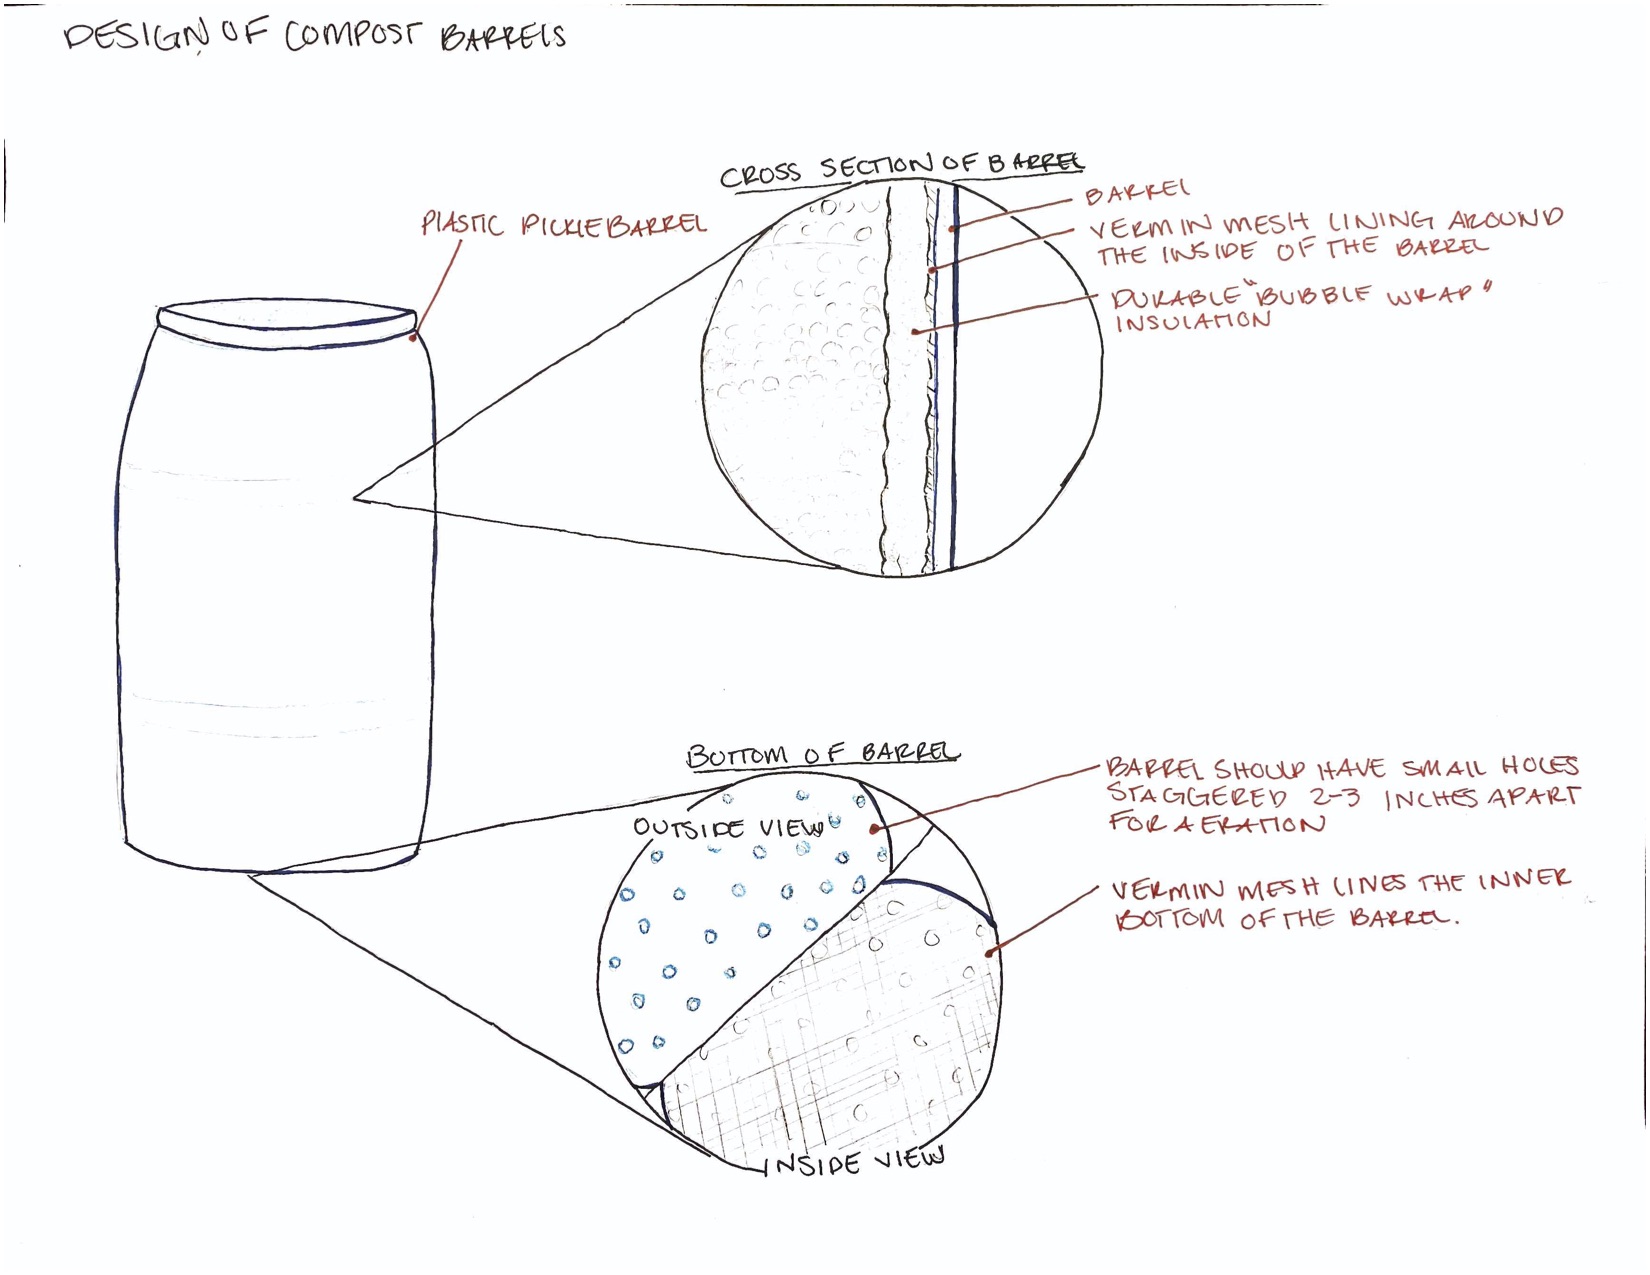 DESIGN OF COMPOST BARRELS
CROSS SECTION OF BARREL
BARREL
VERMIN MESH LINING AROUND
THE INSIDE OF THE BARREL
DURABLE "BUBBLE WRAP"
INSULATION
PLASTIC PICKLE BARREL
BOTTOM OF BARREL
OUTSIDE VIEW
BARREL SHOULD HAVE SMALL HOLES
STAGGERED 2-3 INCHES APART
FOR AERATION
VERMIN MESH LINES THE INNER
BOTTOM OF THE BARREL.
INSIDE VIEW